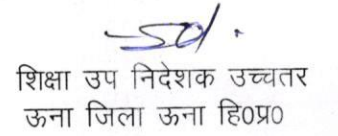 Sd/-
शिक्षा उप निदेशक उच्चतर
ऊना जिला ऊना हि0प्र0